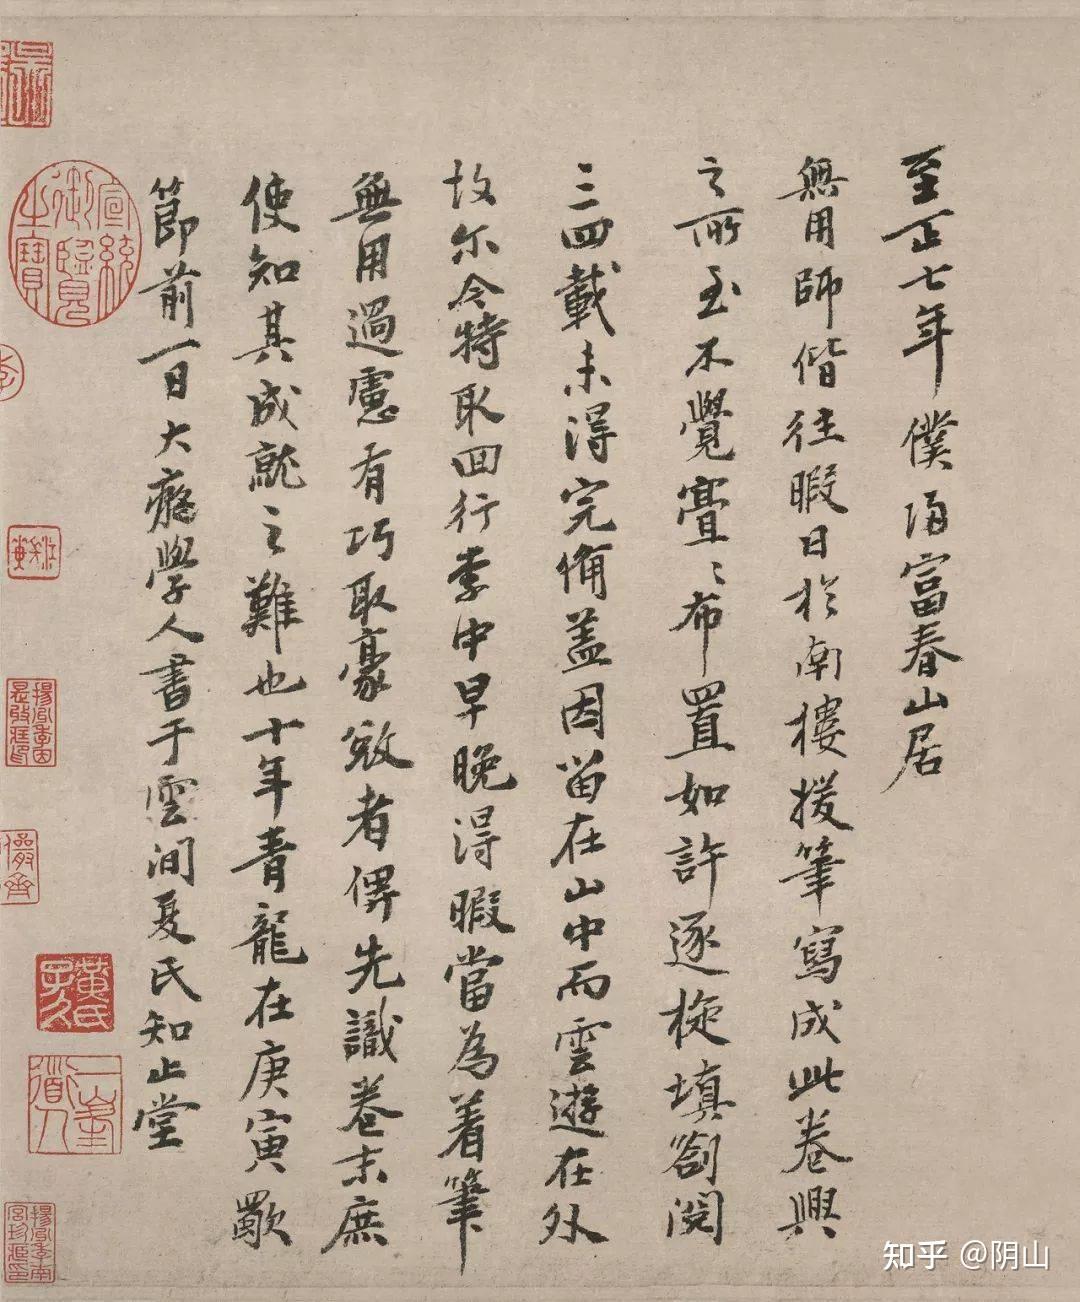 至正七年僕歸富春山居
無用師偕往暇日於南樓援筆寫成此卷興
之所至不覺亹〻布置如許逐旋填劄閱
三四載未得完備蓋因留在山中而雲遊在外
故尔今特取回行李中早晚得暇當為着筆
無用過慮有巧取豪敚者俾先識卷末庶
使知其成就之難也十年青龍在庚寅歜
節前一日大癡學人書于雲間夏氏知止堂
宣統御覽之寶
黃氏子久
一峯道人
知乎 @阴山